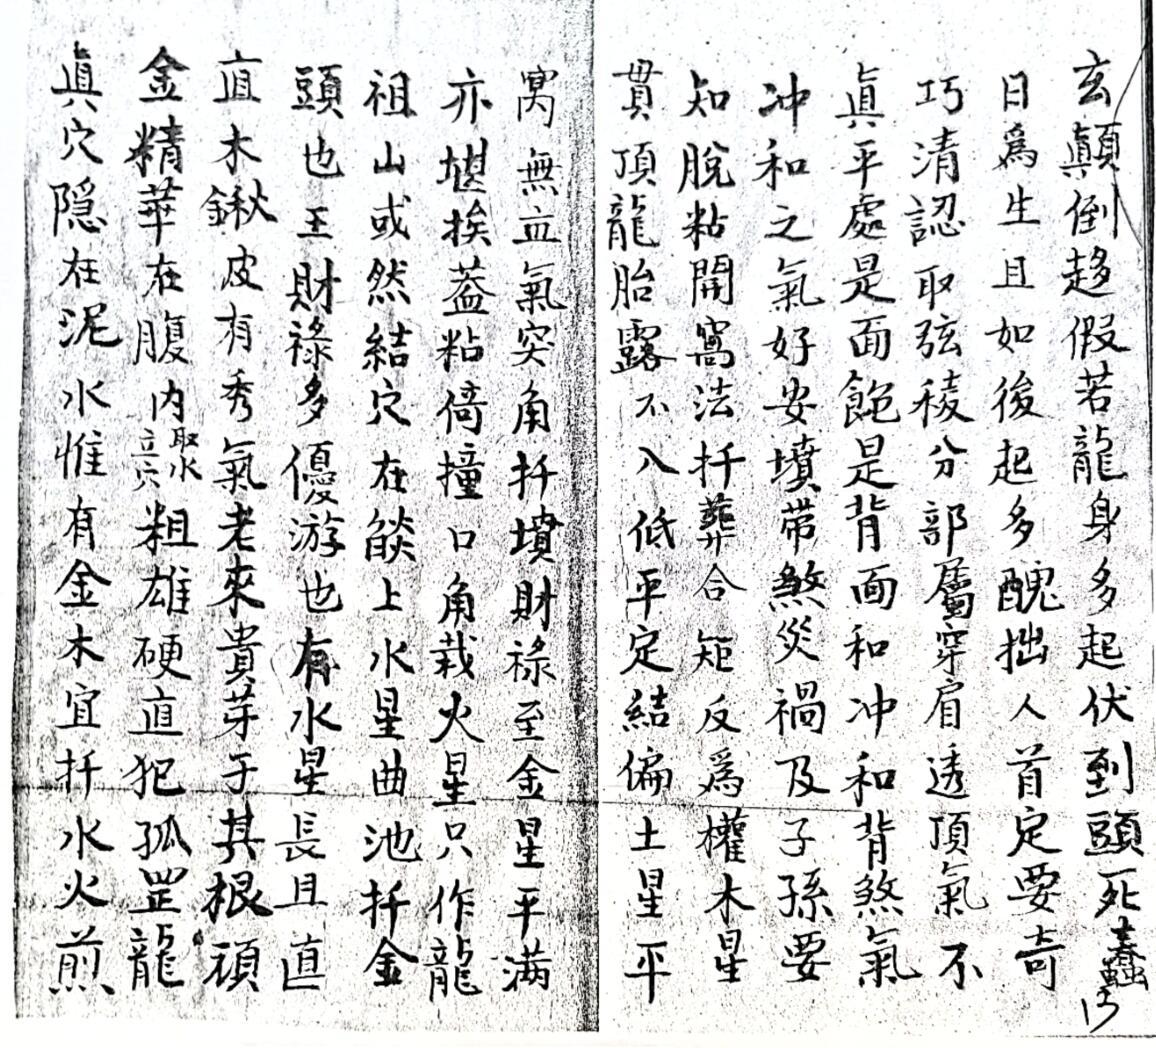 玄顛倒趍假若龍身多起伏到頭死蠢巧
日爲生且如後起多醜拙人首定要奇
巧清認取弦稜分部屬穿眉透頂氣不
眞平處是面飽是背面和冲和背煞氣
冲和之氣好安墳带煞災禍及子孫要
知脫粘開窩法扦葬合矩反爲權木星
貫頂龍胎露不入低平定結偏土星平
窩無並氣突角扦墳財祿至金星平满
亦堪挨葢粘倚撞口角栽火星只作龍
祖山或然結穴在燄上水星曲池扦金
頭也王財祿多優游也有水星長且直
直木鍬皮有秀氣老來貴芽于其根頑
金精華在腹内取水立穴粗雄硬直犯孤罡龍
眞穴隐在泥水惟有金木宜扦水火煎
13